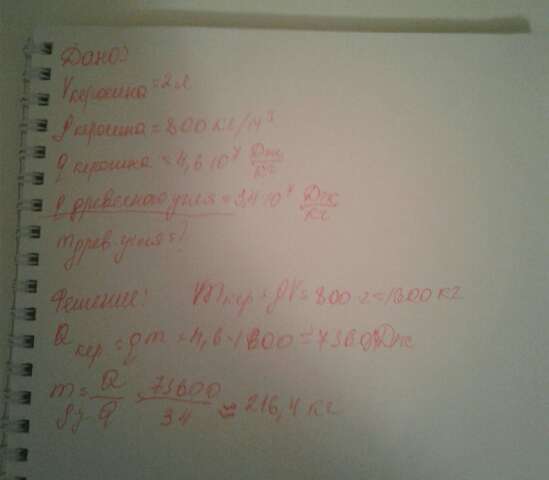 Дано:
Vкеросина = 2 л
ρкеросина = 800 кг/м³
q керосина = 4,6·10⁷ Дж/кг
q древесного угля = 3,4·10⁷ Дж/кг
mдрев. угля = ?
Решение: mкер = ρV = 800·2 = 1600 кг
Qкер = qm = 4,6·1600 = 7360 Дж
m = Q/q = 73600/34 ≈ 216,4 кг